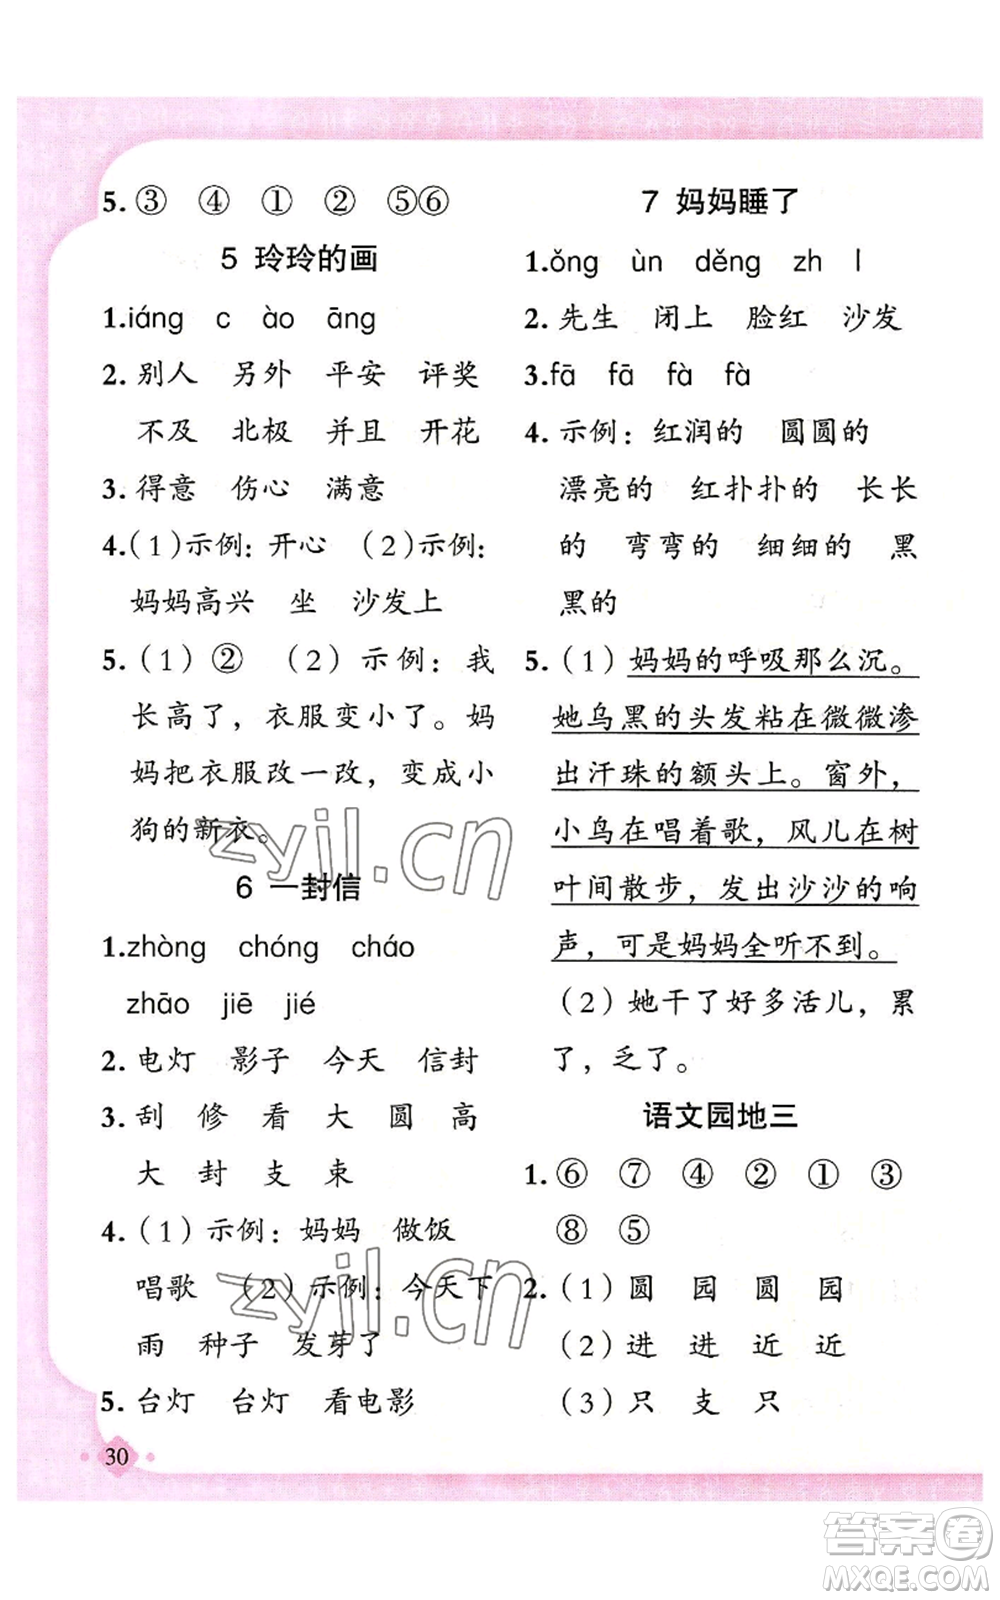 5. ③ ④ ① ② ⑤⑥
5 玲玲的画
1.iáng c ào āng
2. 别人 另外 平安 评奖
不及 北极 并且 开花
3. 得意 伤心 满意
4.(1)示例：开心 (2)示例：
妈妈高兴 坐 沙发上
5.(1)② (2)示例：我
长高了，衣服变小了。妈
妈把衣服改一改，变成小
狗的新衣。
6 一封信
1.zhòng chóng cháo
zhāo jiē jié
2. 电灯 影子 今天 信封
3. 刮 修 看 大 圆 高
大 封 支 束
4.(1)示例：妈妈 做饭
唱歌 (2)示例：今天下
雨 种子 发芽了
5. 台灯 台灯 看电影
30
7 妈妈睡了
1.ǒng ùn děng zh l
2. 先生 闭上 脸红 沙发
3.fā fā fà fà
4. 示例：红润的 圆圆的
漂亮的 红扑扑的 长长
的 弯弯的 细细的 黑
黑的
5.(1)妈妈的呼吸那么沉。
她乌黑的头发粘在微微渗
出汗珠的额头上。窗外，
小鸟在唱着歌，风儿在树
叶间散步，发出沙沙的响
声，可是妈妈全听不到。
(2)她干了好多活儿，累
了，乏了。
语文园地三
1. ⑥ ⑦ ④ ② ① ③
⑧ ⑤
2.(1)圆 园 圆 园
(2)进 进 近 近
(3)只 支 只
zyjl.cn
zyjl.cn
答案圈
MXQE.COM